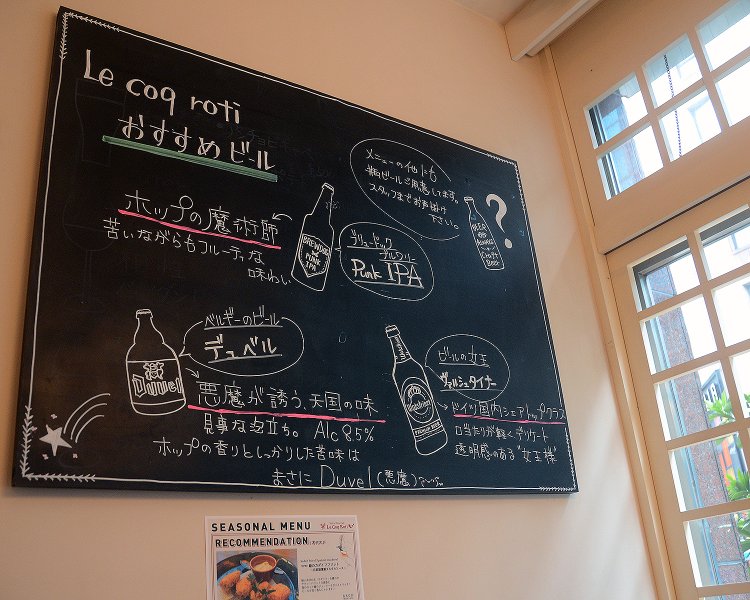 Le coq roti
おすすめビール
メニューの他にも
瓶ビールご用意してます。
スタッフまでお声掛け
下さい。
?
BEER
Craft
BEER
ホップの魔術師
苦いながらもフルーティな
味わい
BREWDOG
PUNK
IPA
ブリュードッグ
ブルワリー
Punk IPA
ベルギーのビール
デュベル
Duvel
悪魔が誘う、天国の味
見事な泡立ち。 Alc 8.5%
ホップの香りとしっかりした苦味は
まさに Duvel (悪魔)
ビールの女王
ヴァルシュタイナー
Warsteiner
PREMIUM BEER
ドイツ国内シェアトップクラス
口当たりが軽くデリケート
透明感のある"女王様"
SEASONAL MENU
Le Coq Roti
RECOMMENDATION